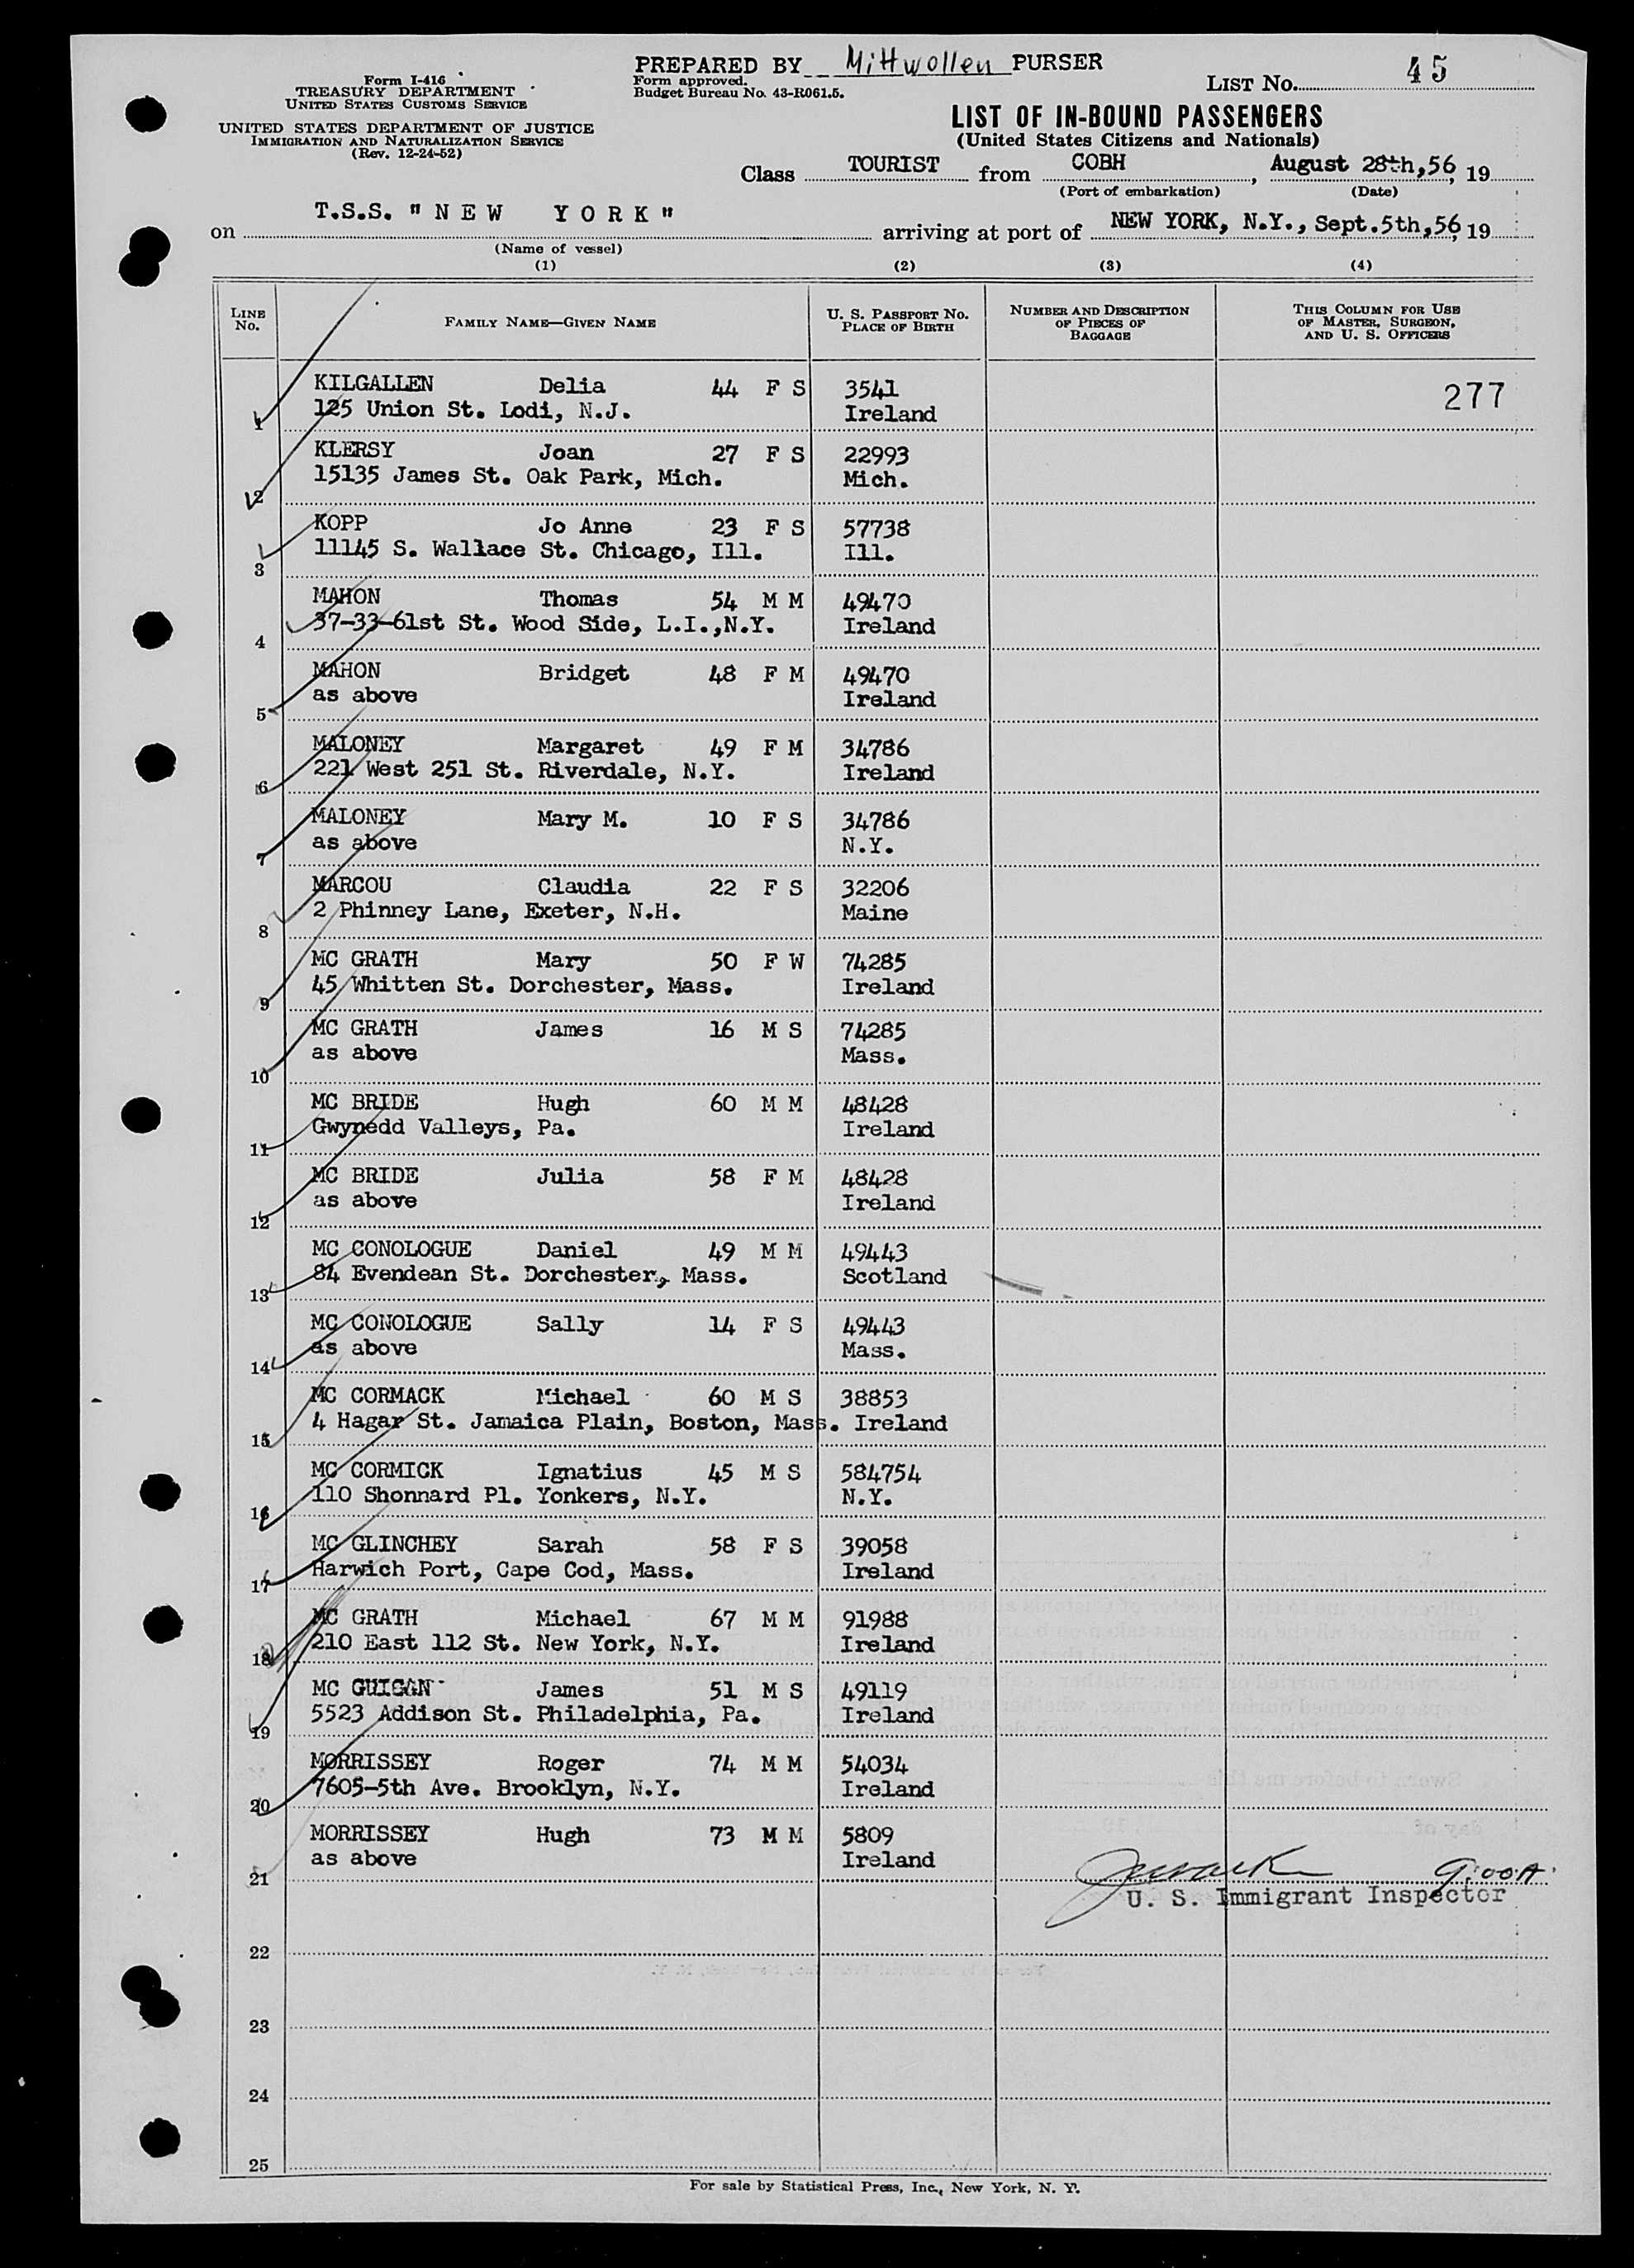 PREPARED BY Mittwollen PURSER
Form approved.
Budget Bureau No. 43-R061.5.
Form I-416
TREASURY DEPARTMENT
UNITED STATES CUSTOMS SERVICE
UNITED STATES DEPARTMENT OF JUSTICE
IMMIGRATION AND NATURALIZATION SERVICE
(Rev. 12-24-52)
LIST NO. 45
LIST OF IN-BOUND PASSENGERS
(United States Citizens and Nationals)
Class TOURIST from COBH, August 28th,56, 19
(Port of embarkation) (Date)
on T.S.S. "NEW YORK" arriving at port of NEW YORK, N.Y., Sept.5th,56, 19
(Name of vessel)
(1) (2) (3) (4)
LINE NO. FAMILY NAME—GIVEN NAME U. S. PASSPORT NO. PLACE OF BIRTH NUMBER AND DESCRIPTION OF PIECES OF BAGGAGE THIS COLUMN FOR USE OF MASTER, SURGEON, AND U. S. OFFICERS
KILGALLEN Delia 44 F S 3541 277
1 125 Union St. Lodi, N.J. Ireland
KLERSY Joan 27 F S 22993
2 15135 James St. Oak Park, Mich. Mich.
KOPP Jo Anne 23 F S 57738
3 11145 S. Wallace St. Chicago, Ill. Ill.
MAHON Thomas 54 M M 49470
4 37-33-61st St. Wood Side, L.I.,N.Y. Ireland
MAHON Bridget 48 F M 49470
5 as above Ireland
MALONEY Margaret 49 F M 34786
6 221 West 251 St. Riverdale, N.Y. Ireland
MALONEY Mary M. 10 F S 34786
7 as above N.Y.
MARCOU Claudia 22 F S 32206
8 2 Phinney Lane, Exeter, N.H. Maine
MC GRATH Mary 50 F W 74285
9 45 Whitten St. Dorchester, Mass. Ireland
MC GRATH James 16 M S 74285
10 as above Mass.
MC BRIDE Hugh 60 M M 48428
11 Gwynedd Valleys, Pa. Ireland
MC BRIDE Julia 58 F M 48428
12 as above Ireland
MC CONOLOGUE Daniel 49 M M 49443
13 84 Evendean St. Dorchester, Mass. Scotland
MC CONOLOGUE Sally 14 F S 49443
14 as above Mass.
MC CORMACK Michael 60 M S 38853
15 4 Hagar St. Jamaica Plain, Boston, Mass. Ireland
MC CORMICK Ignatius 45 M S 584754
16 110 Shonnard Pl. Yonkers, N.Y. N.Y.
MC GLINCHEY Sarah 58 F S 39058
17 Harwich Port, Cape Cod, Mass. Ireland
MC GRATH Michael 67 M M 91988
18 210 East 112 St. New York, N.Y. Ireland
MC GUIGAN James 51 M S 49119
19 5523 Addison St. Philadelphia, Pa. Ireland
MORRISSEY Roger 74 M M 54034
20 7605-5th Ave. Brooklyn, N.Y. Ireland
MORRISSEY Hugh 73 M M 5809
21 as above Ireland
9:00A
U. S. Immigrant Inspector
22
23
24
25
For sale by Statistical Press, Inc., New York, N. Y.